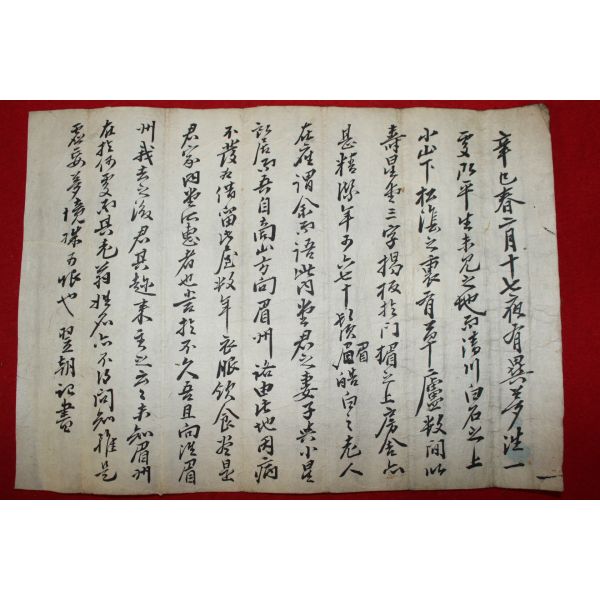 辛巳春二月十七夜有異夢涉一
處政平生未見之地而淸川白石之上
小山下松蔭之裏有草廬數間以
壽星堂三字揭板於門楣之上房舍亦
甚精潔年可六七十鬚眉皓白之老人
在座謂余而語此內堂君之妻子與小星
所居而吾自高山方向眉州語由此地因病
不發爲借留此屋數年衣服飮食皆是
君家內堂所惠者也吾於不久吾且向往眉
州我去之後君其趁來重之云云未知眉州
在於何處而其老翁姓名亦不得問知雖是
虛妄夢境殊可恨也 翌朝記書